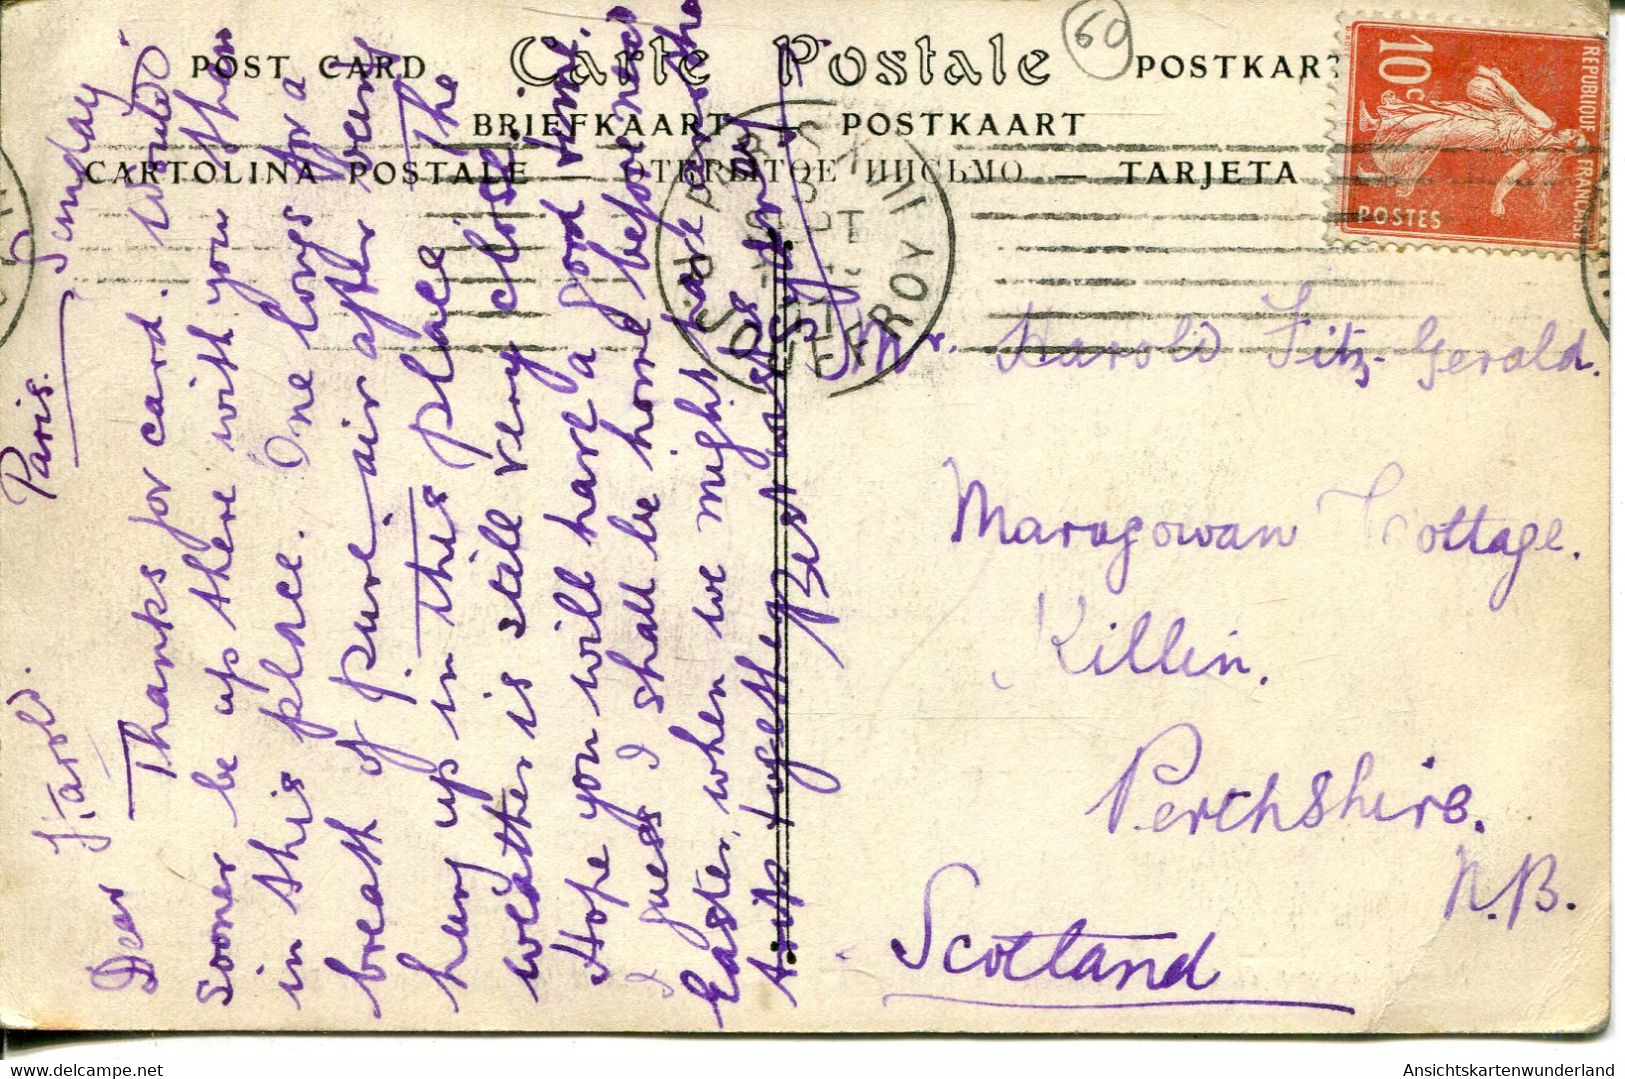 POST CARD Carte Postale POSTKAR
BRIEFKAART — POSTKAART
CARTOLINA POSTALE — ОТКРЫТОЕ ПИСЬМО — TARJETA
60
REPUBLIQUE FRANÇAISE
10c
POSTES
PARIS XVII
SEPT
R. JOUFFROY
Paris. Sunday
Dear Harold.
Thanks for card. Would
sooner be up there with you than
in this place. One longs for a
breath of pure air after being
hung up in this place. The
weather is still very close.
Hope you will have a good time.
I guess I shall be home before next
Easter, when we might have another
together. Best wishes
Mr. Harold Fitz-Gerald.
Maragowan Cottage.
Killin.
Perthshire.
N.B.
Scotland
delcampe.net
AnsichtskartenWunderland